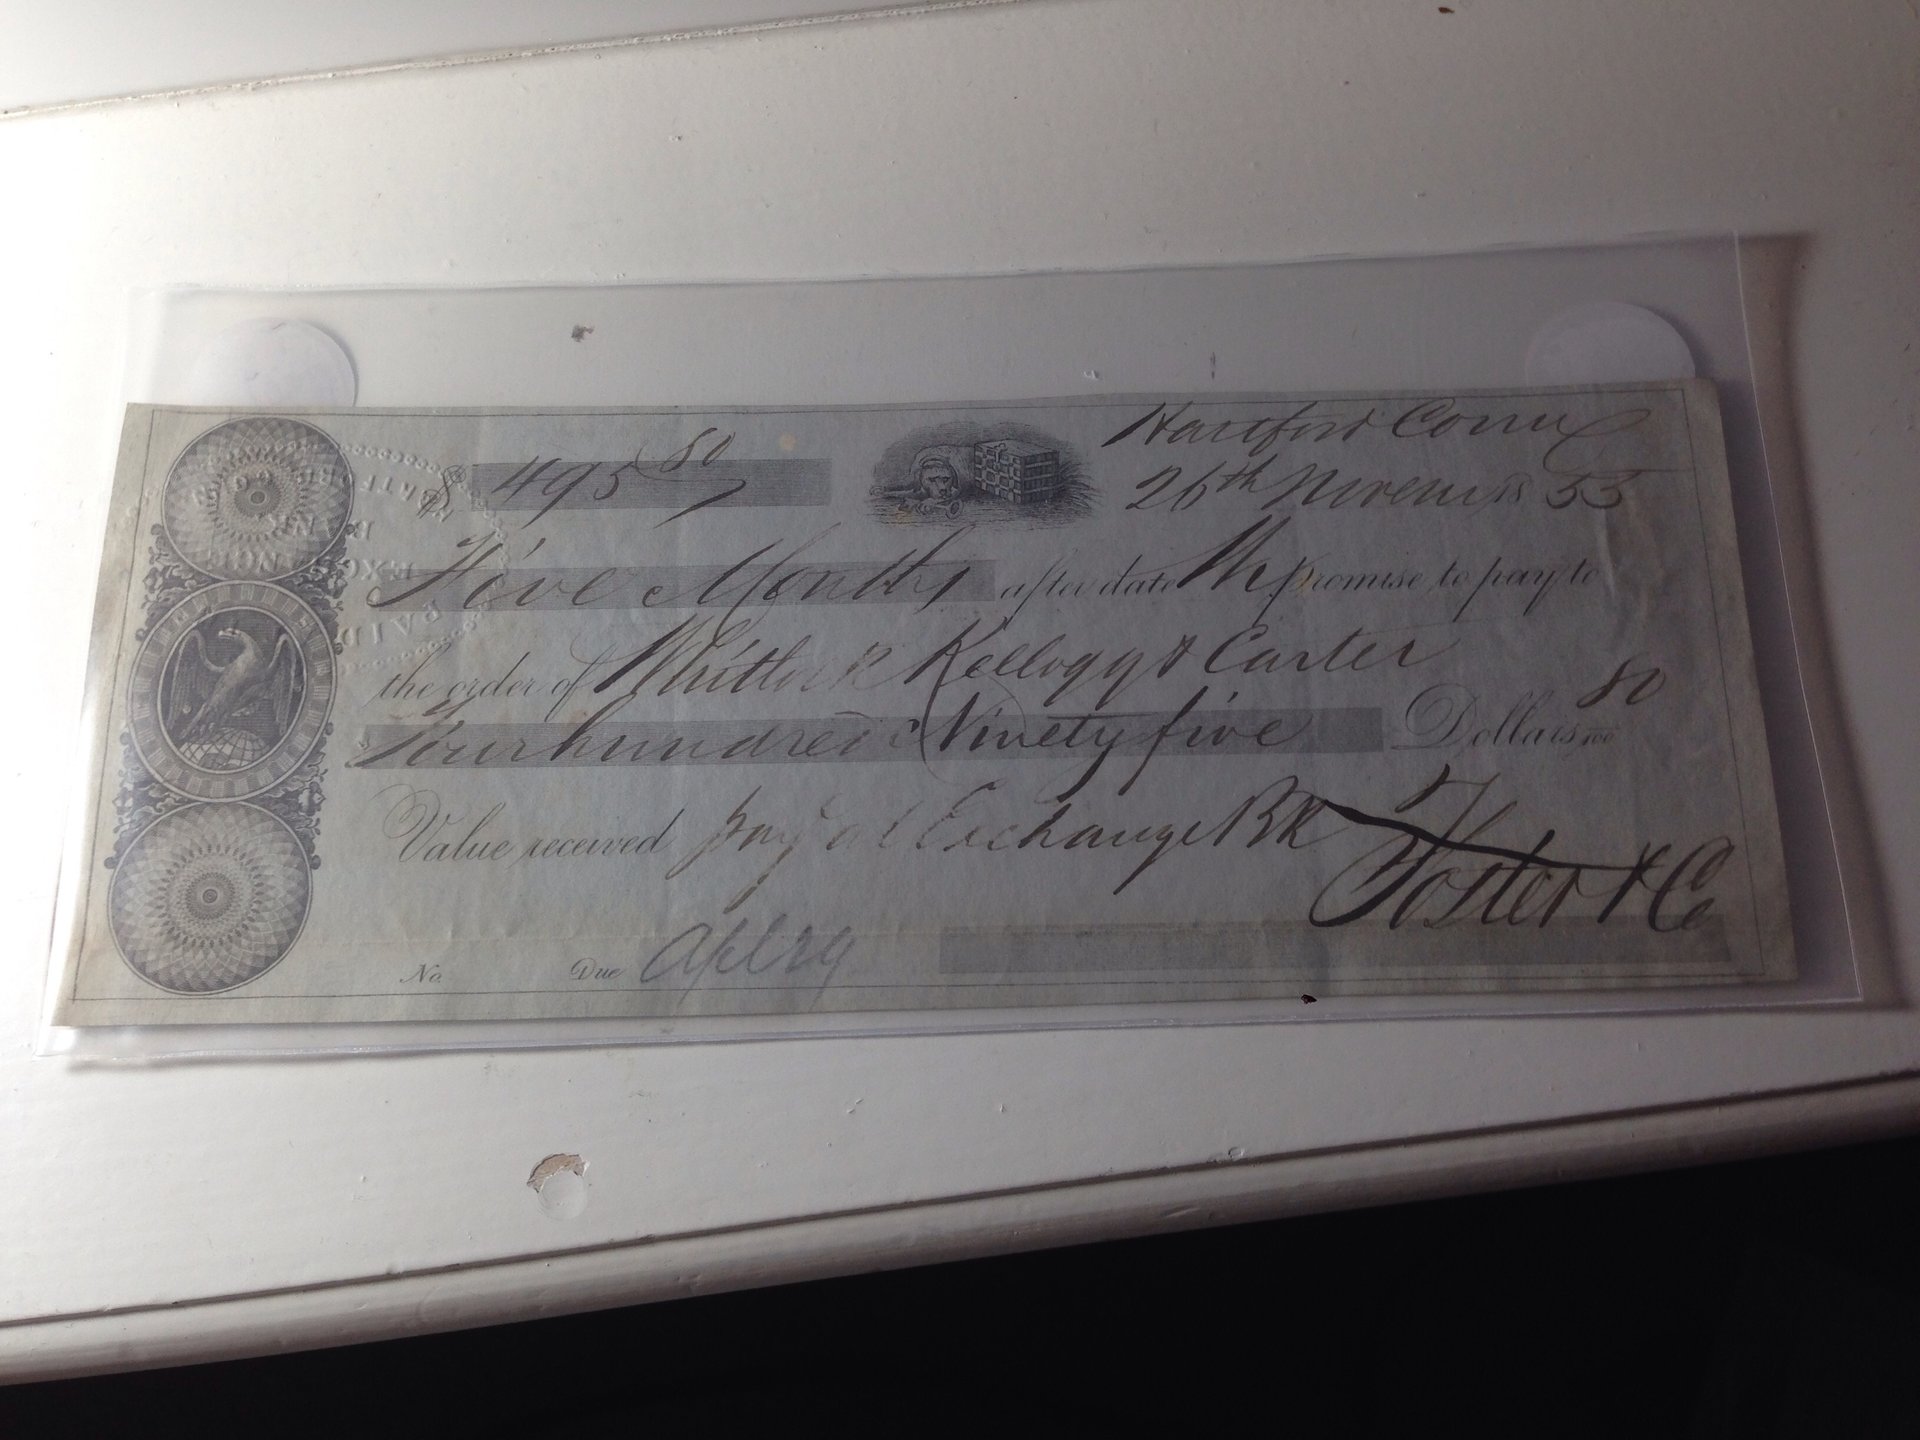 Hartford Conn
$ 495 80
26th Novem 1853
Five Months after date We promise to pay to
the order of Whitlock Kellogg & Carter
Four hundred & Ninety five Dollars 80/100
Value received pay at Exchange Bk
Foster & Co
No. Due Apl 29
EXCHANGE
BANK
HARTFORD
PAID